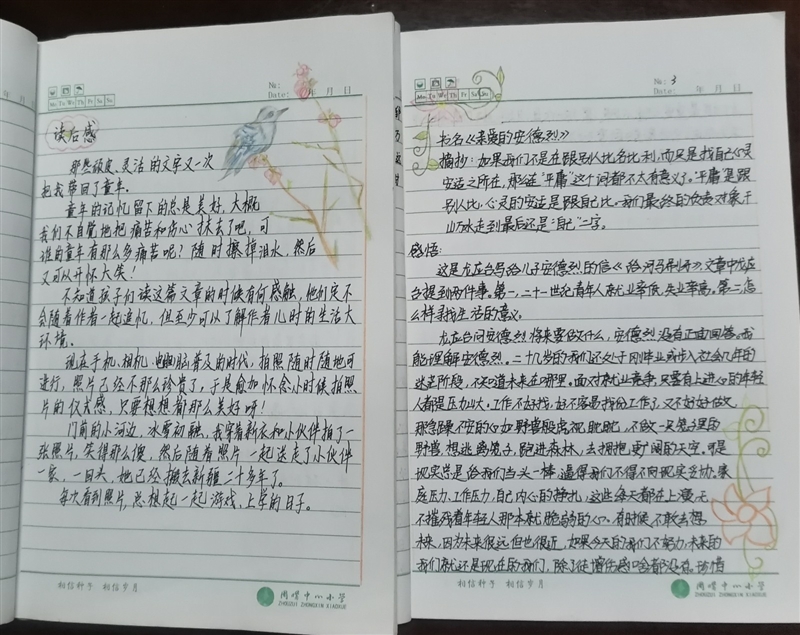 No:
Date: 年 月 日
Mo Tu We Th Fr Sa Su
读后感
那些诙谐、灵活的文字又一次
把我带回了童年。
童年的记忆留下的总是美好,大概
我们不自觉地把痛苦和伤心抹去了吧,可
谁的童年有那么多痛苦呢?随时擦掉泪水,然后
又可以开怀大笑!
不知道孩子们读这篇文章的时候有何感触,他们定不
会随着作者一起追忆,但至少可以了解作者儿时的生活大
环境。
现在手机、相机、电脑普及的时代,拍照随时随地可
进行,照片已经不那么珍贵了,于是愈加怀念小时候拍照
片的仪式感,只要想想都那么美好呀!
门前的小河边,冰雪初融,我穿着新衣和小伙伴拍了一
张照片,笑得那么傻,然后随着照片一起送走了小伙伴
一家,一回头,她已经搬去新疆二十多年了。
每次看到照片,总想起一起游戏、上学的日子。
相信种子 相信岁月
周嘴中心小学
ZHOUZUI ZHONGXIN XIAOXUE
No: 3
Date: 年 月 日
Mo Tu We Th Fr Sa Su
书名《亲爱的安德烈》
摘抄:如果我们不是在跟别人比名比利,而只是找自己心灵
安适之所在,那么连"平庸"这个词都不太有意义了。"平庸"是跟
别人比,心灵的安适是跟自己比。我们最终的负责对象,千
山万水走到最后还是"自己"二字。
感悟:
这是龙应台写给儿子安德烈的信《给河马刷牙》文章中龙应
台提到两件事。第一,二十一世纪青年人就业率低,失业率高。第二,怎
么样寻找生活的意义。
龙应台问安德烈将来要做什么,安德烈没有正面回答。我
能理解安德烈。二十几岁的我们还处于刚毕业或步入社会几年的
迷茫阶段,不知道未来在哪里。面对就业竞争,只要有上进心的年轻
人都是压力山大。工作不好找,好不容易找份工作了,又不好好做,
那急躁不安的心如野兽般虎视眈眈,不做一只笼子里的
野兽,想逃离笼子,跑进森林,去拥抱更广阔的天空。可是
现实总是给我们当头一棒,逼得我们不得不向现实妥协。家
庭压力、工作压力,自己内心的挣扎,这些每天都在上演,无
不摧残着年轻人那本就脆弱的心。有时候不敢去想
未来,因为未来很远但也很近,如果今天的我们不努力,未来的
我们就还是现在的我们,除了徒增伤感啥都没有。珍惜
相信种子 相信岁月
周嘴中心小学
ZHOUZUI ZHONGXIN XIAOXUE